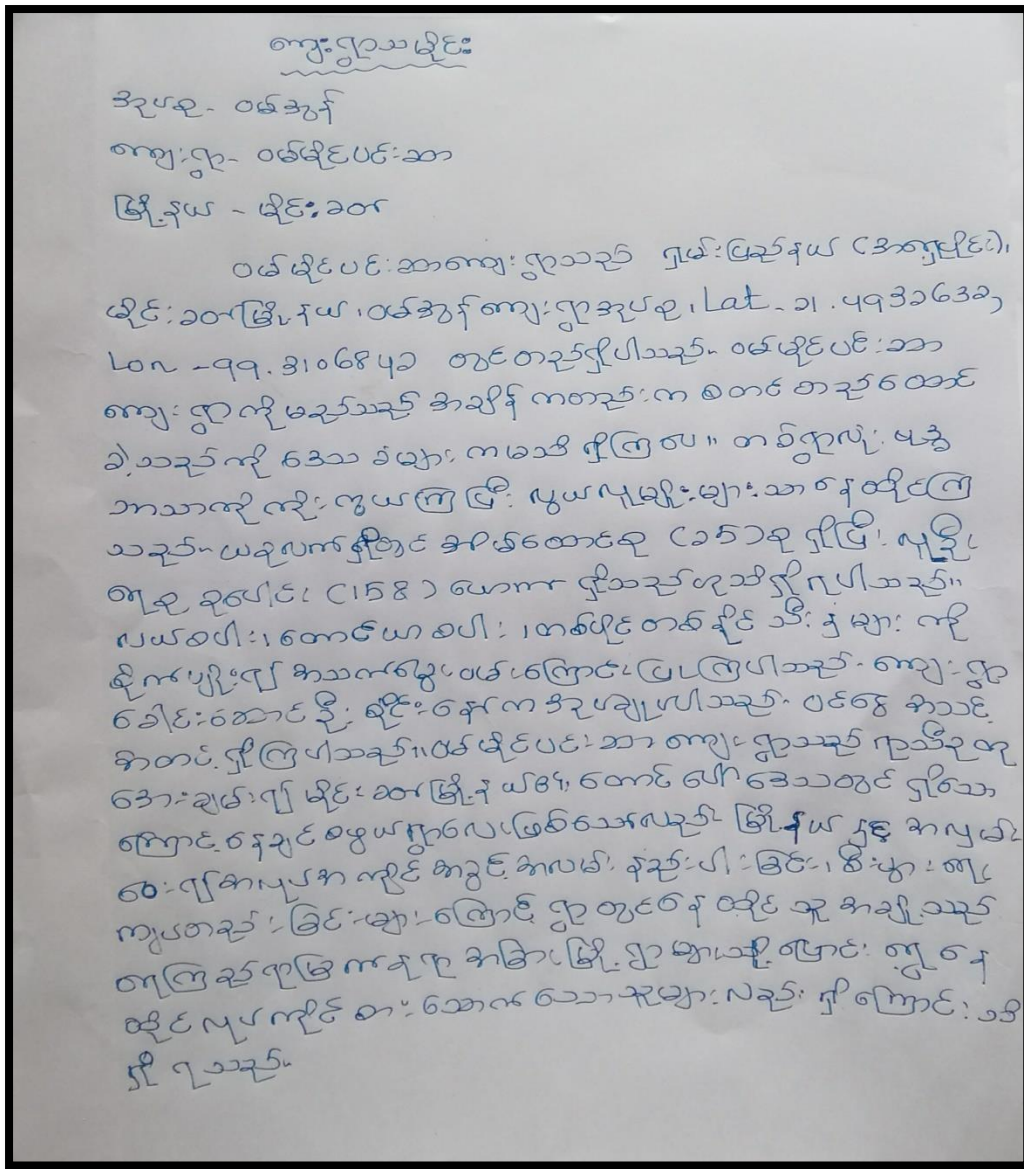 ကျေးရွာသမိုင်း
အုပ်စု - ဝမ်အွန်
ကျေးရွာ - ဝမ်မိုင်ပင်းဆာ
မြို့နယ် - မိုင်းခတ်
ဝမ်မိုင်ပင်းဆာကျေးရွာသည် ရှမ်းပြည်နယ် (အရှေ့ပိုင်း)၊
မိုင်းခတ်မြို့နယ်၊ ဝမ်အွန်ကျေးရွာအုပ်စု၊ Lat - 21.4932632,
Lon - 99.3106842 တွင်တည်ရှိပါသည်။ ဝမ်မိုင်ပင်းဆာ
ကျေးရွာကို မည်သည့် အချိန် ကတည်းက စတင် တည်ထောင်
ခဲ့သည်ကို ဒေသ ခံများ ကမသိ ရှိကြပေ။ တစ်ရွာလုံး ဗုဒ္ဓ
ဘာသာကို ကိုးကွယ်ကြပြီး လွယ်လူမျိုးများသာ နေထိုင်ကြ
သည်။ ယခုလက်ရှိတွင် အိမ်ထောင်စု (25) စု ရှိပြီး လူဦး
ရေ စုစုပေါင်း (158) ယောက် ရှိသည်ဟုသိရှိရပါသည်။
လယ်စပါး၊ တောင်ယာစပါး၊ တစ်ပိုင်တစ်နိုင် သီးနှံများ ကို
စိုက်ပျိုး၍ အသက်မွေးဝမ်းကြောင်းပြုကြပါသည်။ ကျေးရွာ
ခေါင်းဆောင် ဦးစိုင်းနော်က အုပ်ချုပ်ပါသည်။ ပင်ငွေ အသင့်
အတင့် ရှိကြပါသည်။ ဝမ်မိုင်ပင်းဆာ ကျေးရွာသည် ရာသီဥတု
အေးချမ်း၍ မိုင်းခတ်မြို့နယ်၏ တောင်ပေါ် ဒေသတွင် ရှိသော
ကြောင့် နေချင်စဖွယ်ရွာလေးဖြစ်သော်လည်း မြို့နယ် နှင့် အလှမ်း
ဝေး၍ အလုပ်အကိုင် အခွင့်အလမ်း နည်းပါးခြင်း၊ စီးပွားရေး
ကျပ်တည်းခြင်းများကြောင့် ရွာတွင်နေ ထိုင် သူ အချို့သည်
ရေကြည်ရာမြက်နုရာ အခြားမြို့ရွာများသို့ ပြောင်းရွှေ့နေ
ထိုင် လုပ်ကိုင် စားသောက်သောသူများလည်း ရှိကြောင်း သိ
ရှိ ရသည်။